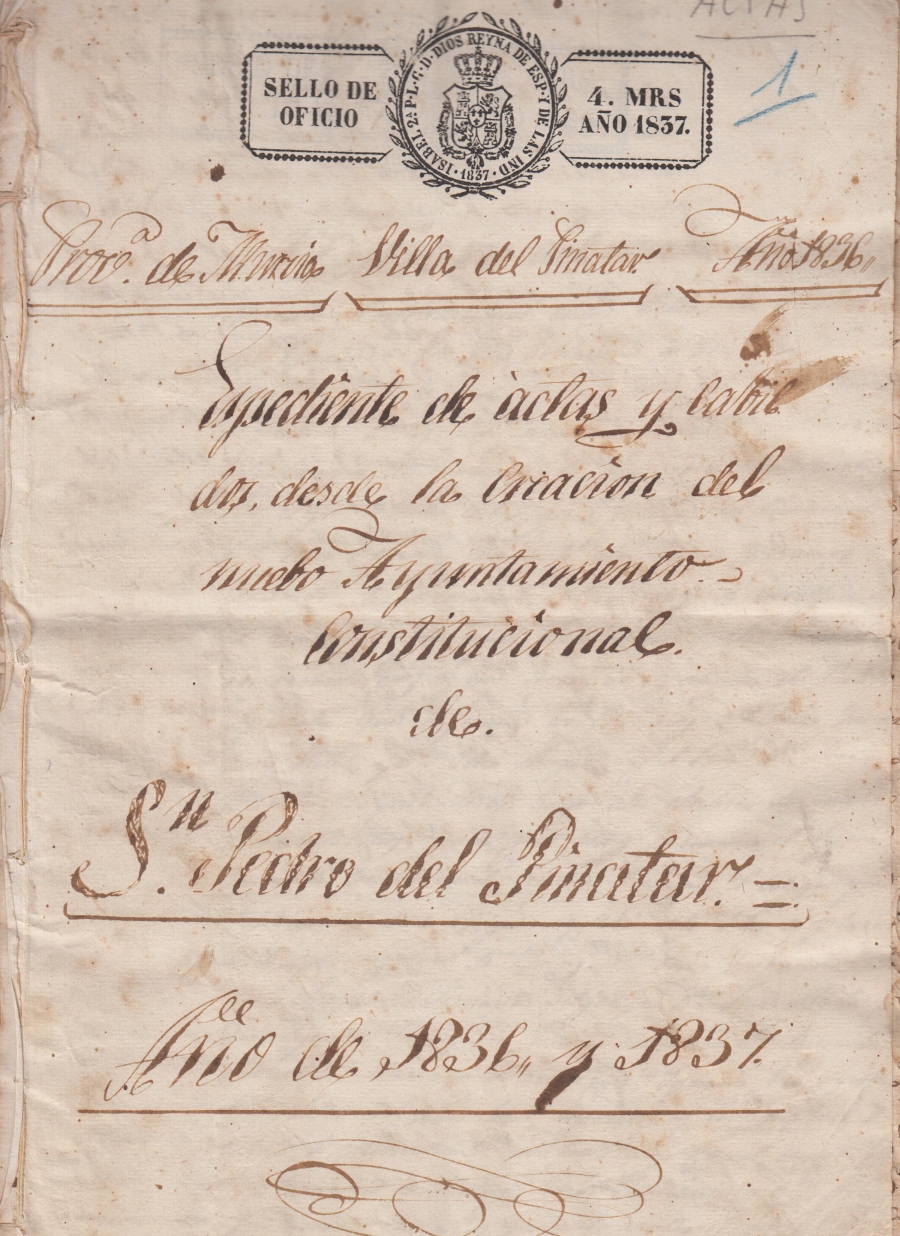 ACTAS
1
SELLO DE
OFICIO
ISABEL 2ª P. L. G. D. DIOS REYNA DE ESP. Y DE LAS IND
· 1837 ·
4. MRS
AÑO 1837.
Provª. de Murcia Villa del Pinatar. Año 1836„
Espediente de actas y cabil
dos, desde la creacion del
nuebo Ayuntamiento
Constitucional.
de.
Sn. Pedro del Pinatar. =
Año de 1836„ y 1837.